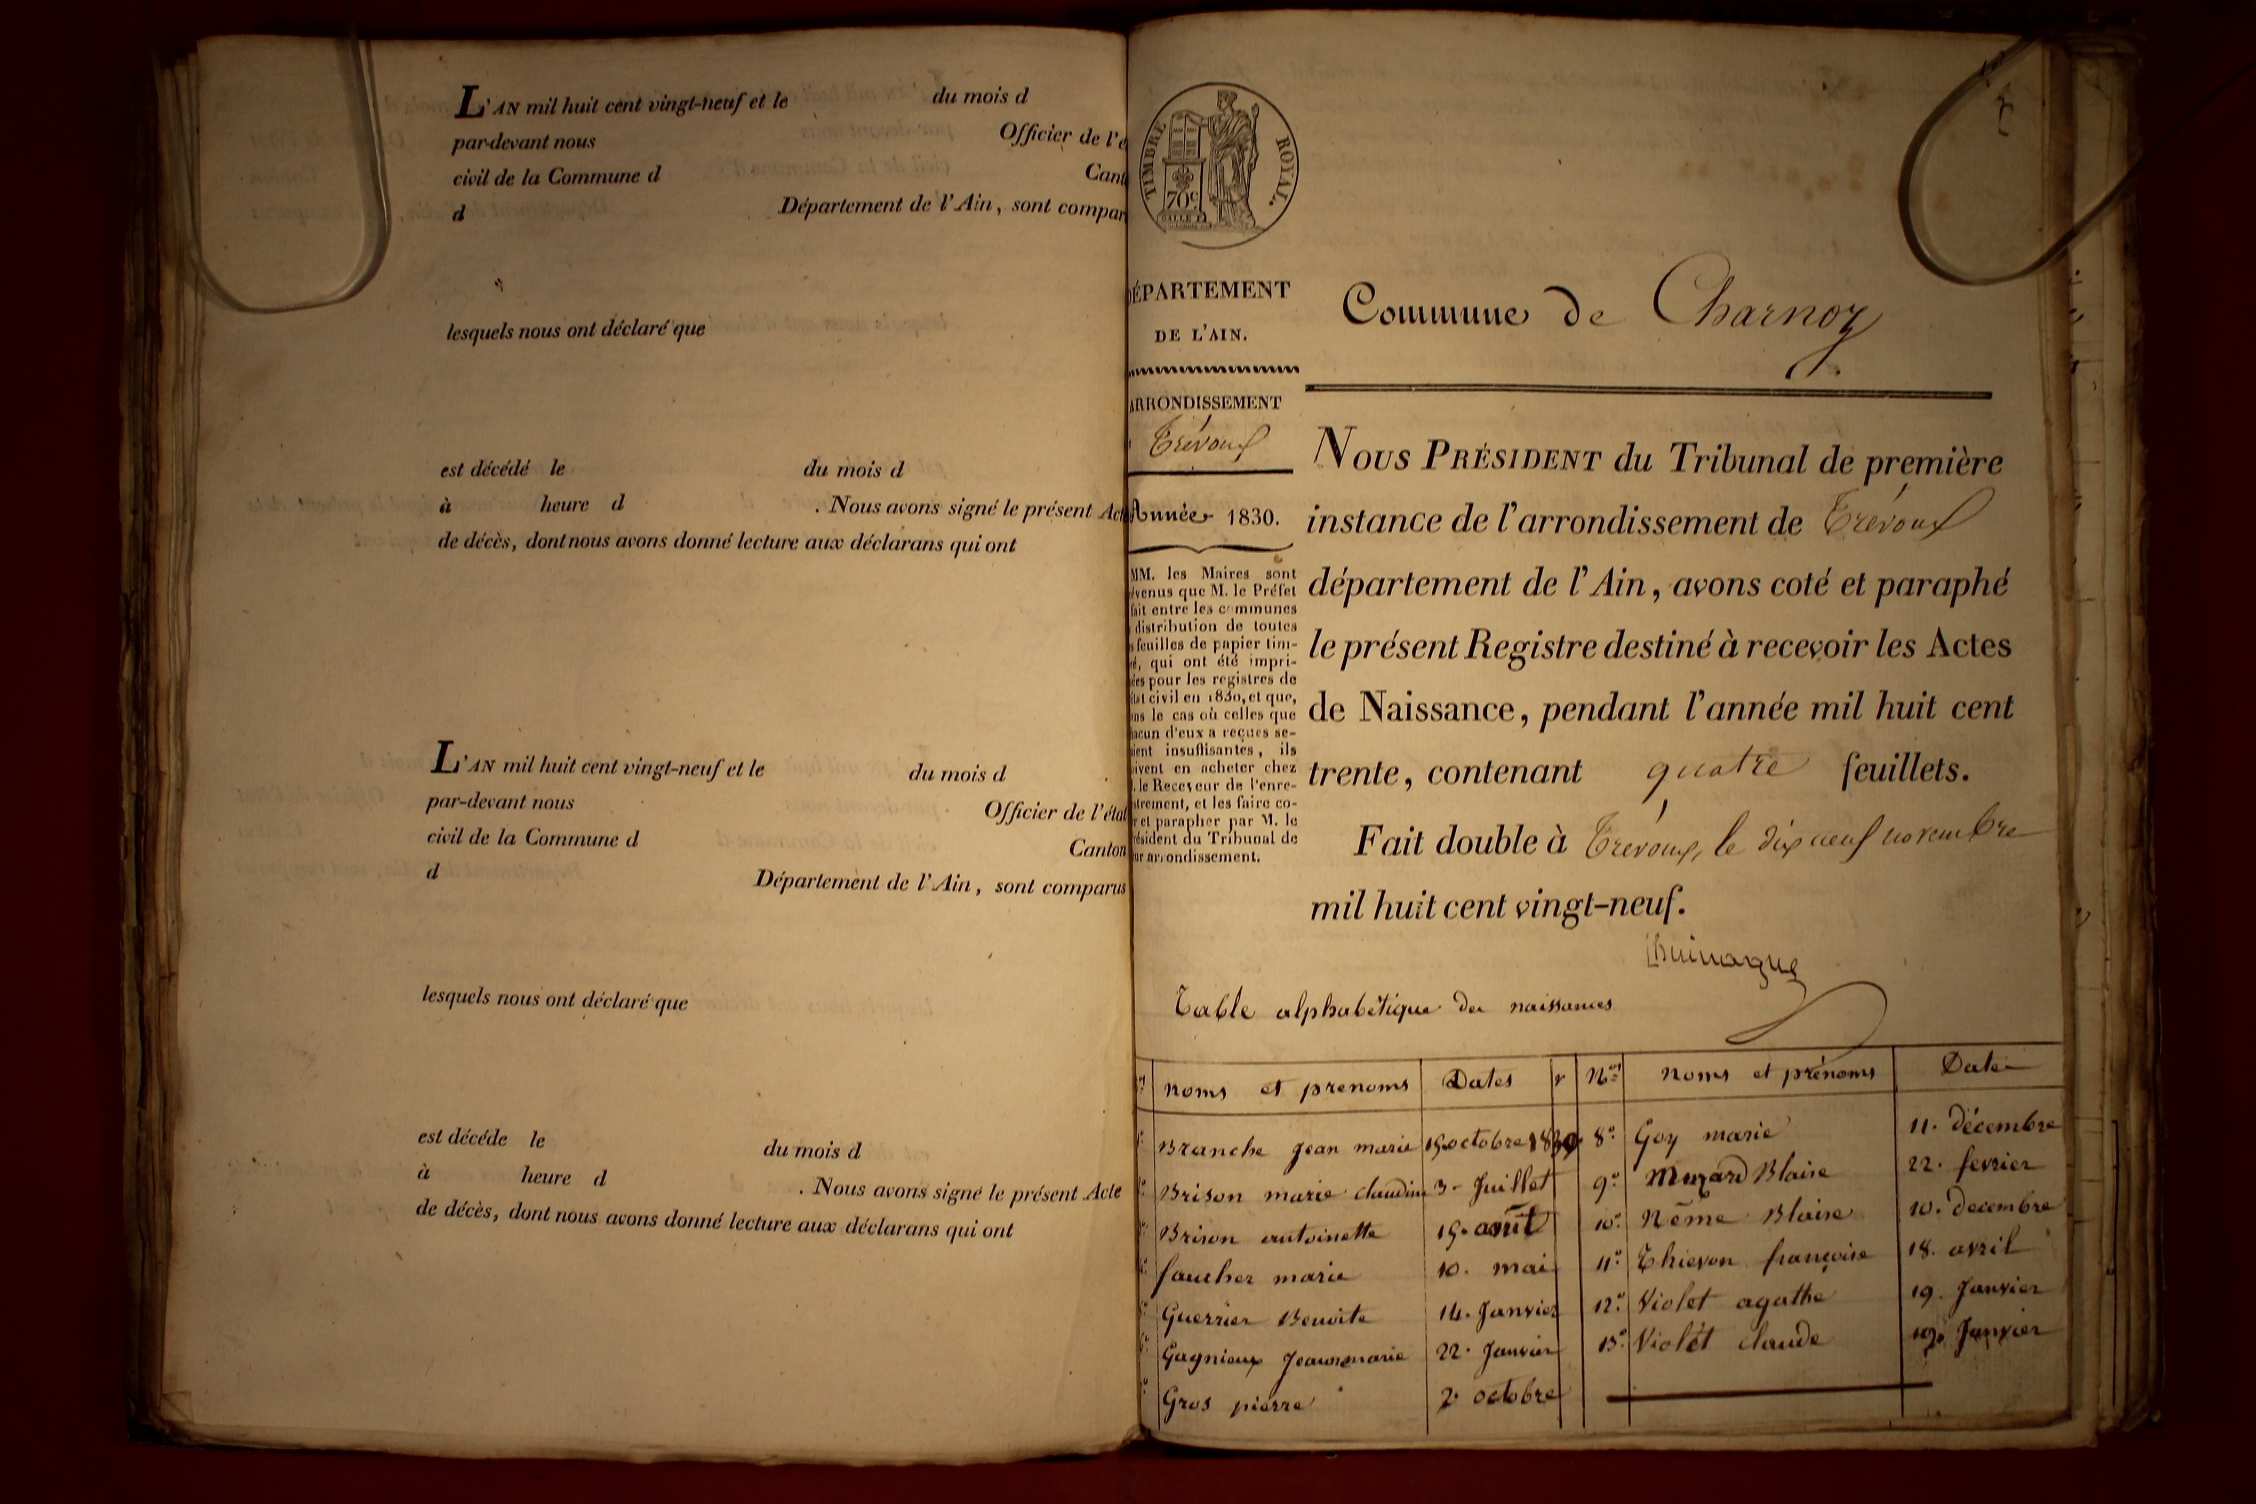 L'AN mil huit cent vingt-neuf et le du mois d
par-devant nous Officier de l'é
civil de la Commune d Cant
d Département de l'Ain, sont compar
lesquels nous ont déclaré que
est décédé le du mois d
à heure d . Nous avons signé le présent Act
de décès, dont nous avons donné lecture aux déclarans qui ont
L'AN mil huit cent vingt-neuf et le du mois d
par-devant nous Officier de l'état
civil de la Commune d Canton
d Département de l'Ain, sont comparus
lesquels nous ont déclaré que
est décéde le du mois d
à heure d . Nous avons signé le présent Acte
de décès, dont nous avons donné lecture aux déclarans qui ont
TIMBRE ROYAL.
70c
DÉPARTEMENT
DE L'AIN.
ARRONDISSEMENT
Trévoux
Année 1830.
MM. les Maires sont
évenus que M. le Préfet
fait entre les communes
distribution de toutes
s feuilles de papier tim-
é, qui ont été impri-
ées pour les registres de
état civil en 1830, et que,
ns le cas où celles que
hacun d'eux a reçues se-
aient insuffisantes, ils
oivent en acheter chez
. le Receveur de l'enre-
istrement, et les faire co-
r et parapher par M. le
résident du Tribunal de
ur arrondissement.
Commune de Charnoz
NOUS PRÉSIDENT du Tribunal de première
instance de l'arrondissement de Trévoux
département de l'Ain, avons coté et paraphé
le présent Registre destiné à recevoir les Actes
de Naissance, pendant l'année mil huit cent
trente, contenant quatre feuillets.
Fait double à Trévoux, le dix neuf novembre
mil huit cent vingt-neuf.
Table alphabétique des naissances
noms et prenoms Dates
Branche Jean marie 15 octobre 1830
Brison marie claudine 3 Juillet
Brison antoinette 15. août
faucher marie 10. mai
Guerrier Benoite 14. Janvier
Gagnieux Jeanne marie 22. Janvier
Gros pierre 2. octobre
Nos noms et prénoms Date
8° Goy marie 11. décembre
9° Muzard Blaise 22. fevrier
10° Nême Blaise 10. decembre
11° Thievon françoise 18. avril
12° Violet agathe 19. Janvier
13° Violet claude 19. Janvier